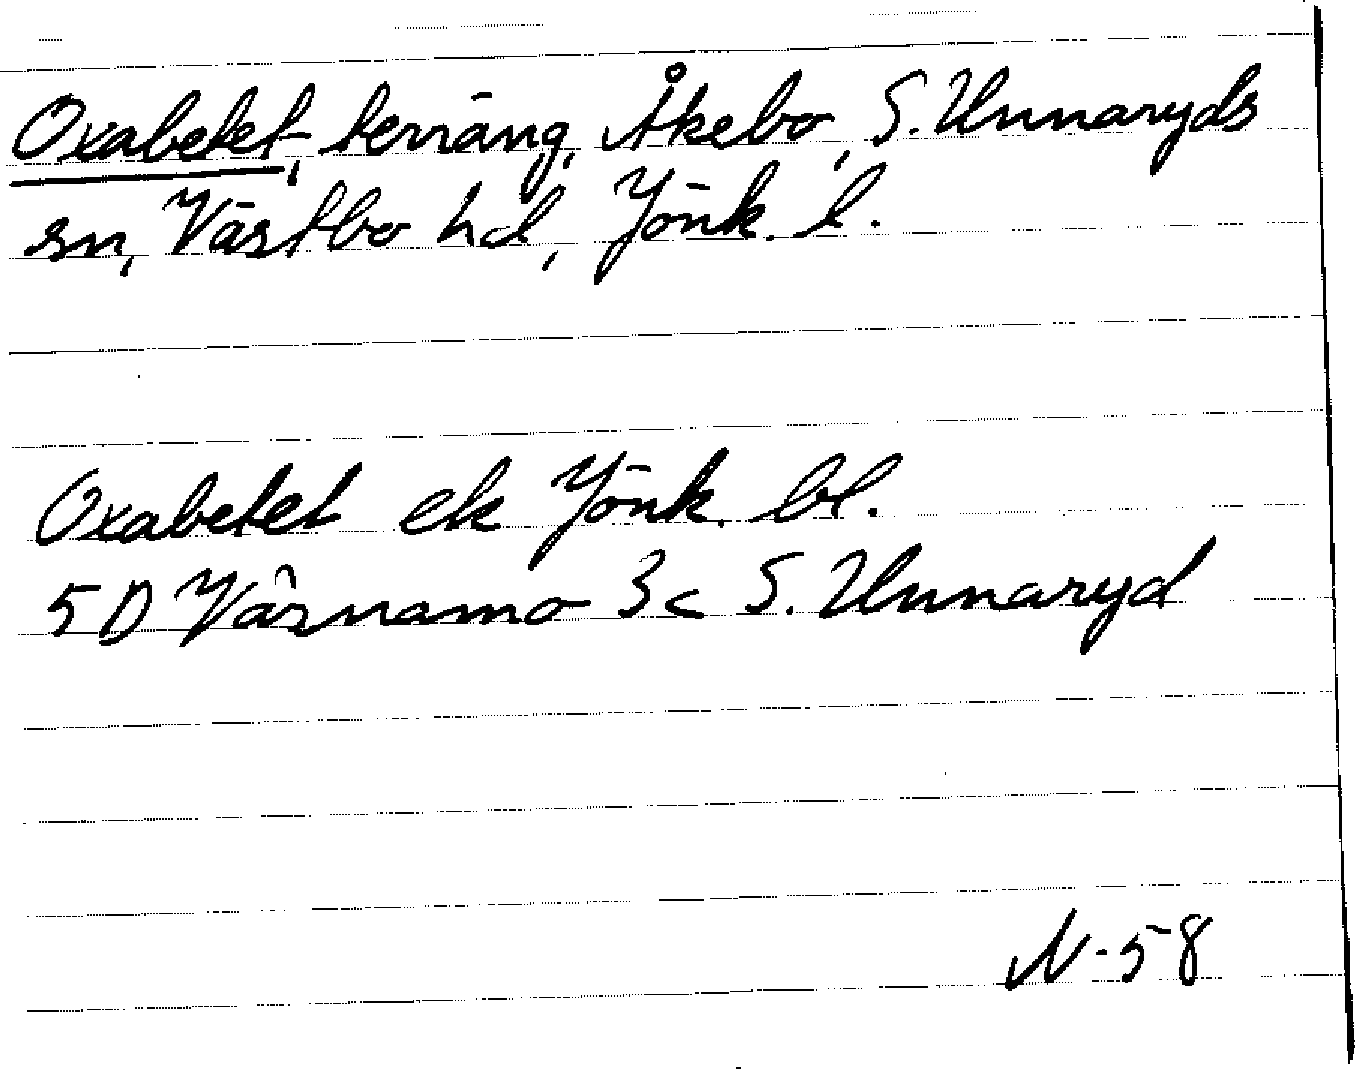 Oxabetet, terräng, Åkebo, S. Unnaryds
sn, Västbo hd, Jönk. l.
Oxabetet ek Jönk. bl.
5 D Värnamo 3c S. Unnaryd
N-58